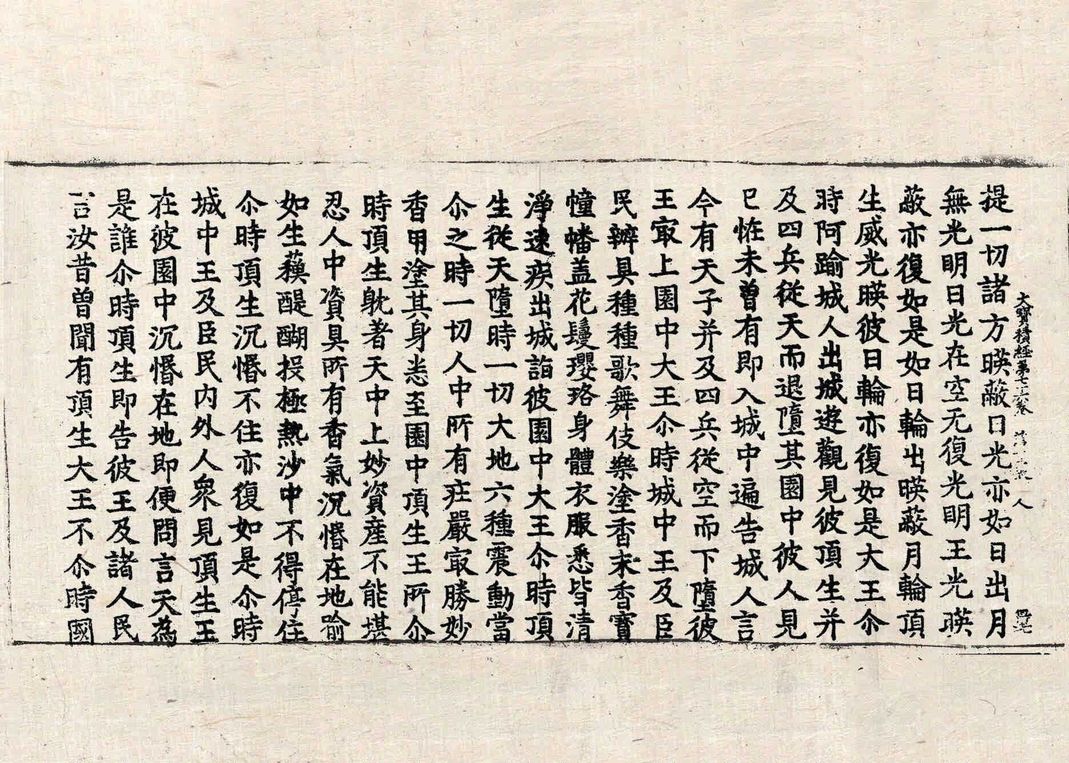 大寶積經第七 卷 人
提一切諸方暎蔽日光亦如日出月
無光明日光在空无復光明王光暎
蔽亦復如是如日輪出暎蔽月輪頂
生威光暎彼日輪亦復如是大王尒
時阿踰城人出城遊觀見彼頂生并
及四兵從天而退墮其園中彼人見
已恠未曾有即入城中遍告城人言
今有天子并及四兵從空而下墮彼
王㝡上園中大王尒時城中王及臣
民辦具種種歌舞伎樂塗香末香寶
幢幡盖花鬘瓔珞身體衣服悉皆清
淨速疾出城詣彼園中大王尒時頂
生從天墮時一切大地六種震動當
尒之時一切人中所有庄嚴㝡勝妙
香用塗其身悉至園中頂生王所尒
時頂生躭著天中上妙資産不能堪
忍人中資具所有香氣沉惛在地喻
如生蘓醍醐投極熱沙中不得停住
尒時頂生沉惛不住亦復如是尒時
城中王及臣民內外人衆見頂生王
在彼園中沉惛在地即便問言天為
是誰尒時頂生即告彼王及諸人民
言汝昔曾聞有頂生大王不尒時國